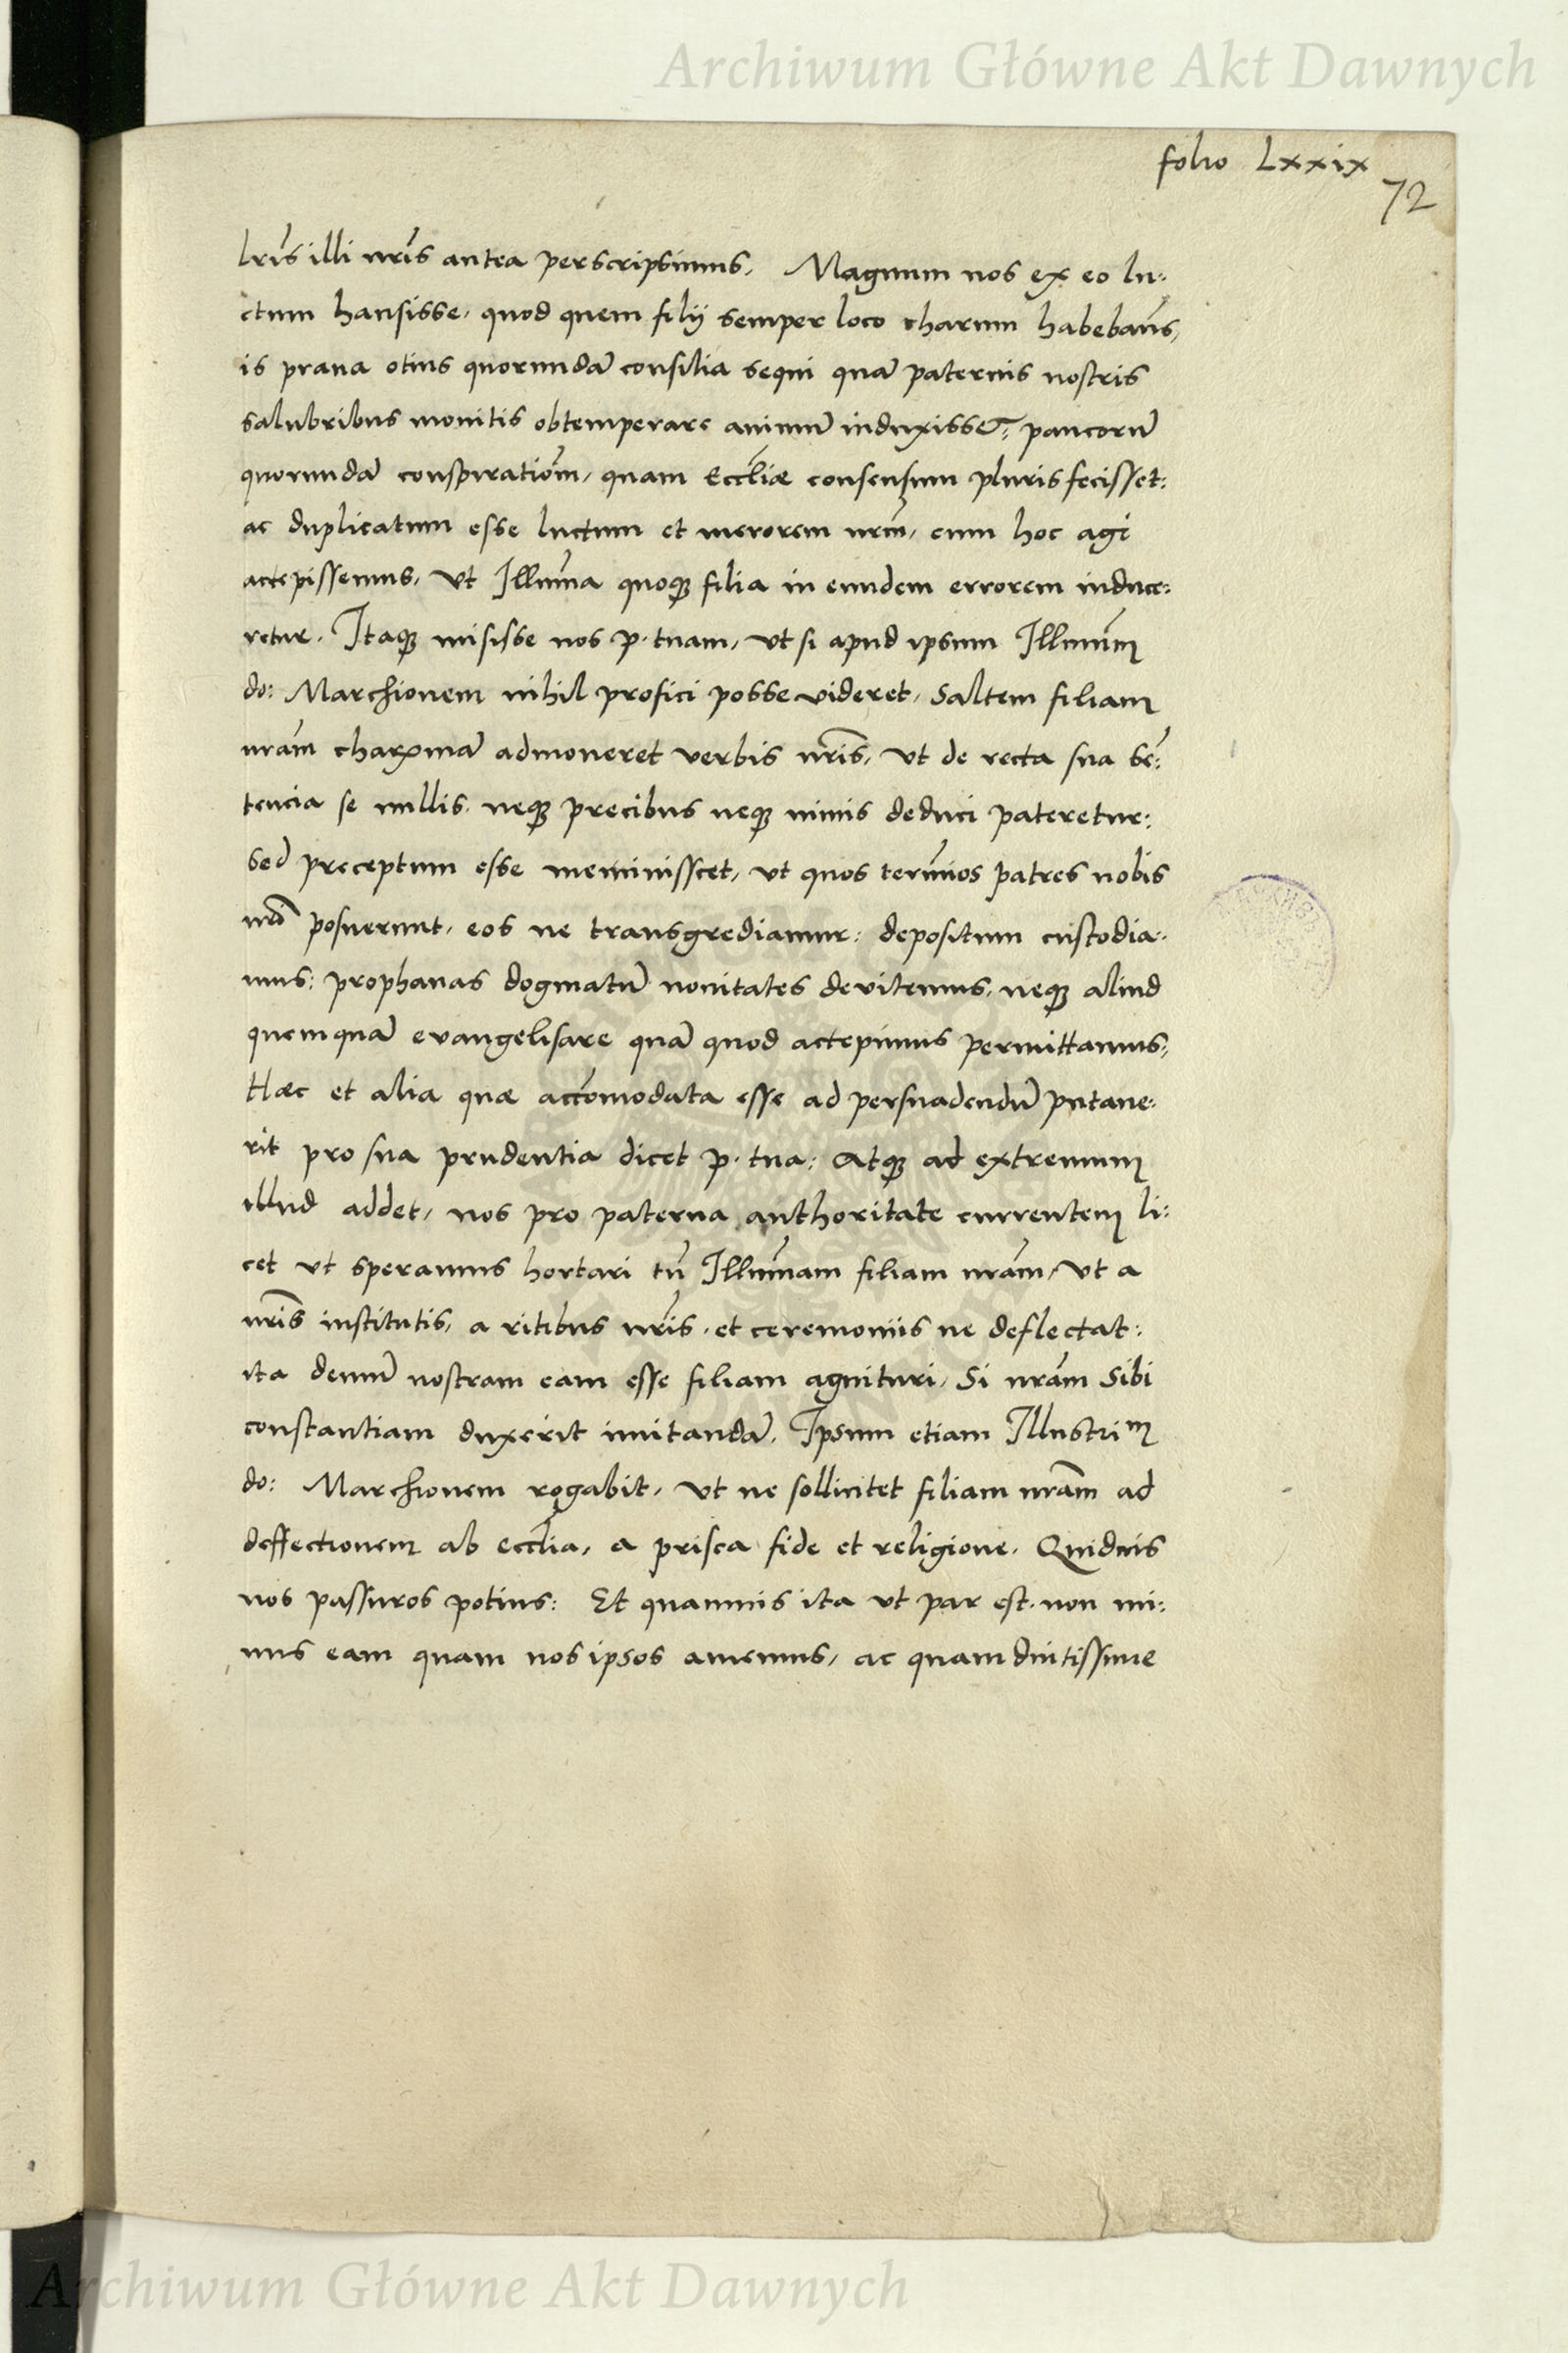 Archiwum Główne Akt Dawnych
folio Lxxix
72
lr̃is illi nr̃is antea perscripsimus. Magnum nos ex eo lu:
ctum hausisse, quod quem filij semper loco charum habebam̃s,
is praua otius quorundã consilia sequi quã paternis nostris
salubribus monitis obtemperare animũ induxisset: paucorũ
quorundã conspiratiõm, quam Eccl̃iæ consensum pluris fecisset:
ac duplicatum esse luctum et merorem nr̃m, cum hoc agi
accepissemus, vt Illum̃a quoqꝫ filia in eundem errorem induce:
retur. Itaqꝫ misisse nos p. tuam, vt si apud ipsum Illmũm
do: Marchionem nihil profici posse videret, saltem filiam
nr̃am charxmã admoneret verbis nr̃is, vt de recta sua sẽ:
tencia se nullis neqꝫ precibus neqꝫ minis deduci pateretur:
sed preceptum esse meminisscet, vt quos termĩos patres nobis
nr̃i posuerunt, eos ne transgrediamur: depositum custodia:
mus: prophanas dogmatũ nouitates devitemus, neqꝫ aliud
quemquã evangelisare quã quod accepimus permittamus:
Hæc et alia quæ accõmodata esse ad persuadendũ putaue:
rit pro sua prudentia dicet p. tua: Atqꝫ ad extremum
illud addet, nos pro paterna authoritate currentem li:
cet vt speramus hortari tñ Illum̃am filiam nr̃am, vt a
nr̃is institutis, a ritibus nr̃is, et ceremoniis ne deflectat:
ita demũ nostram eam esse filiam agnituri, Si nr̃am sibi
constantiam duxerit imitandã. Ipsum etiam Illustri<sup>m</sup>
do: Marchionem rogabit, vt ne sollicitet filiam nr̃am ad
deffectionem ab eccl̃ia, a prisca fide et religione. Quiduis
nos passuros potius: Et quamuis ita vt par est, non mi:
nus eam quam nos ipsos amemus, ac quam diutissime
Archiwum Główne Akt Dawnych